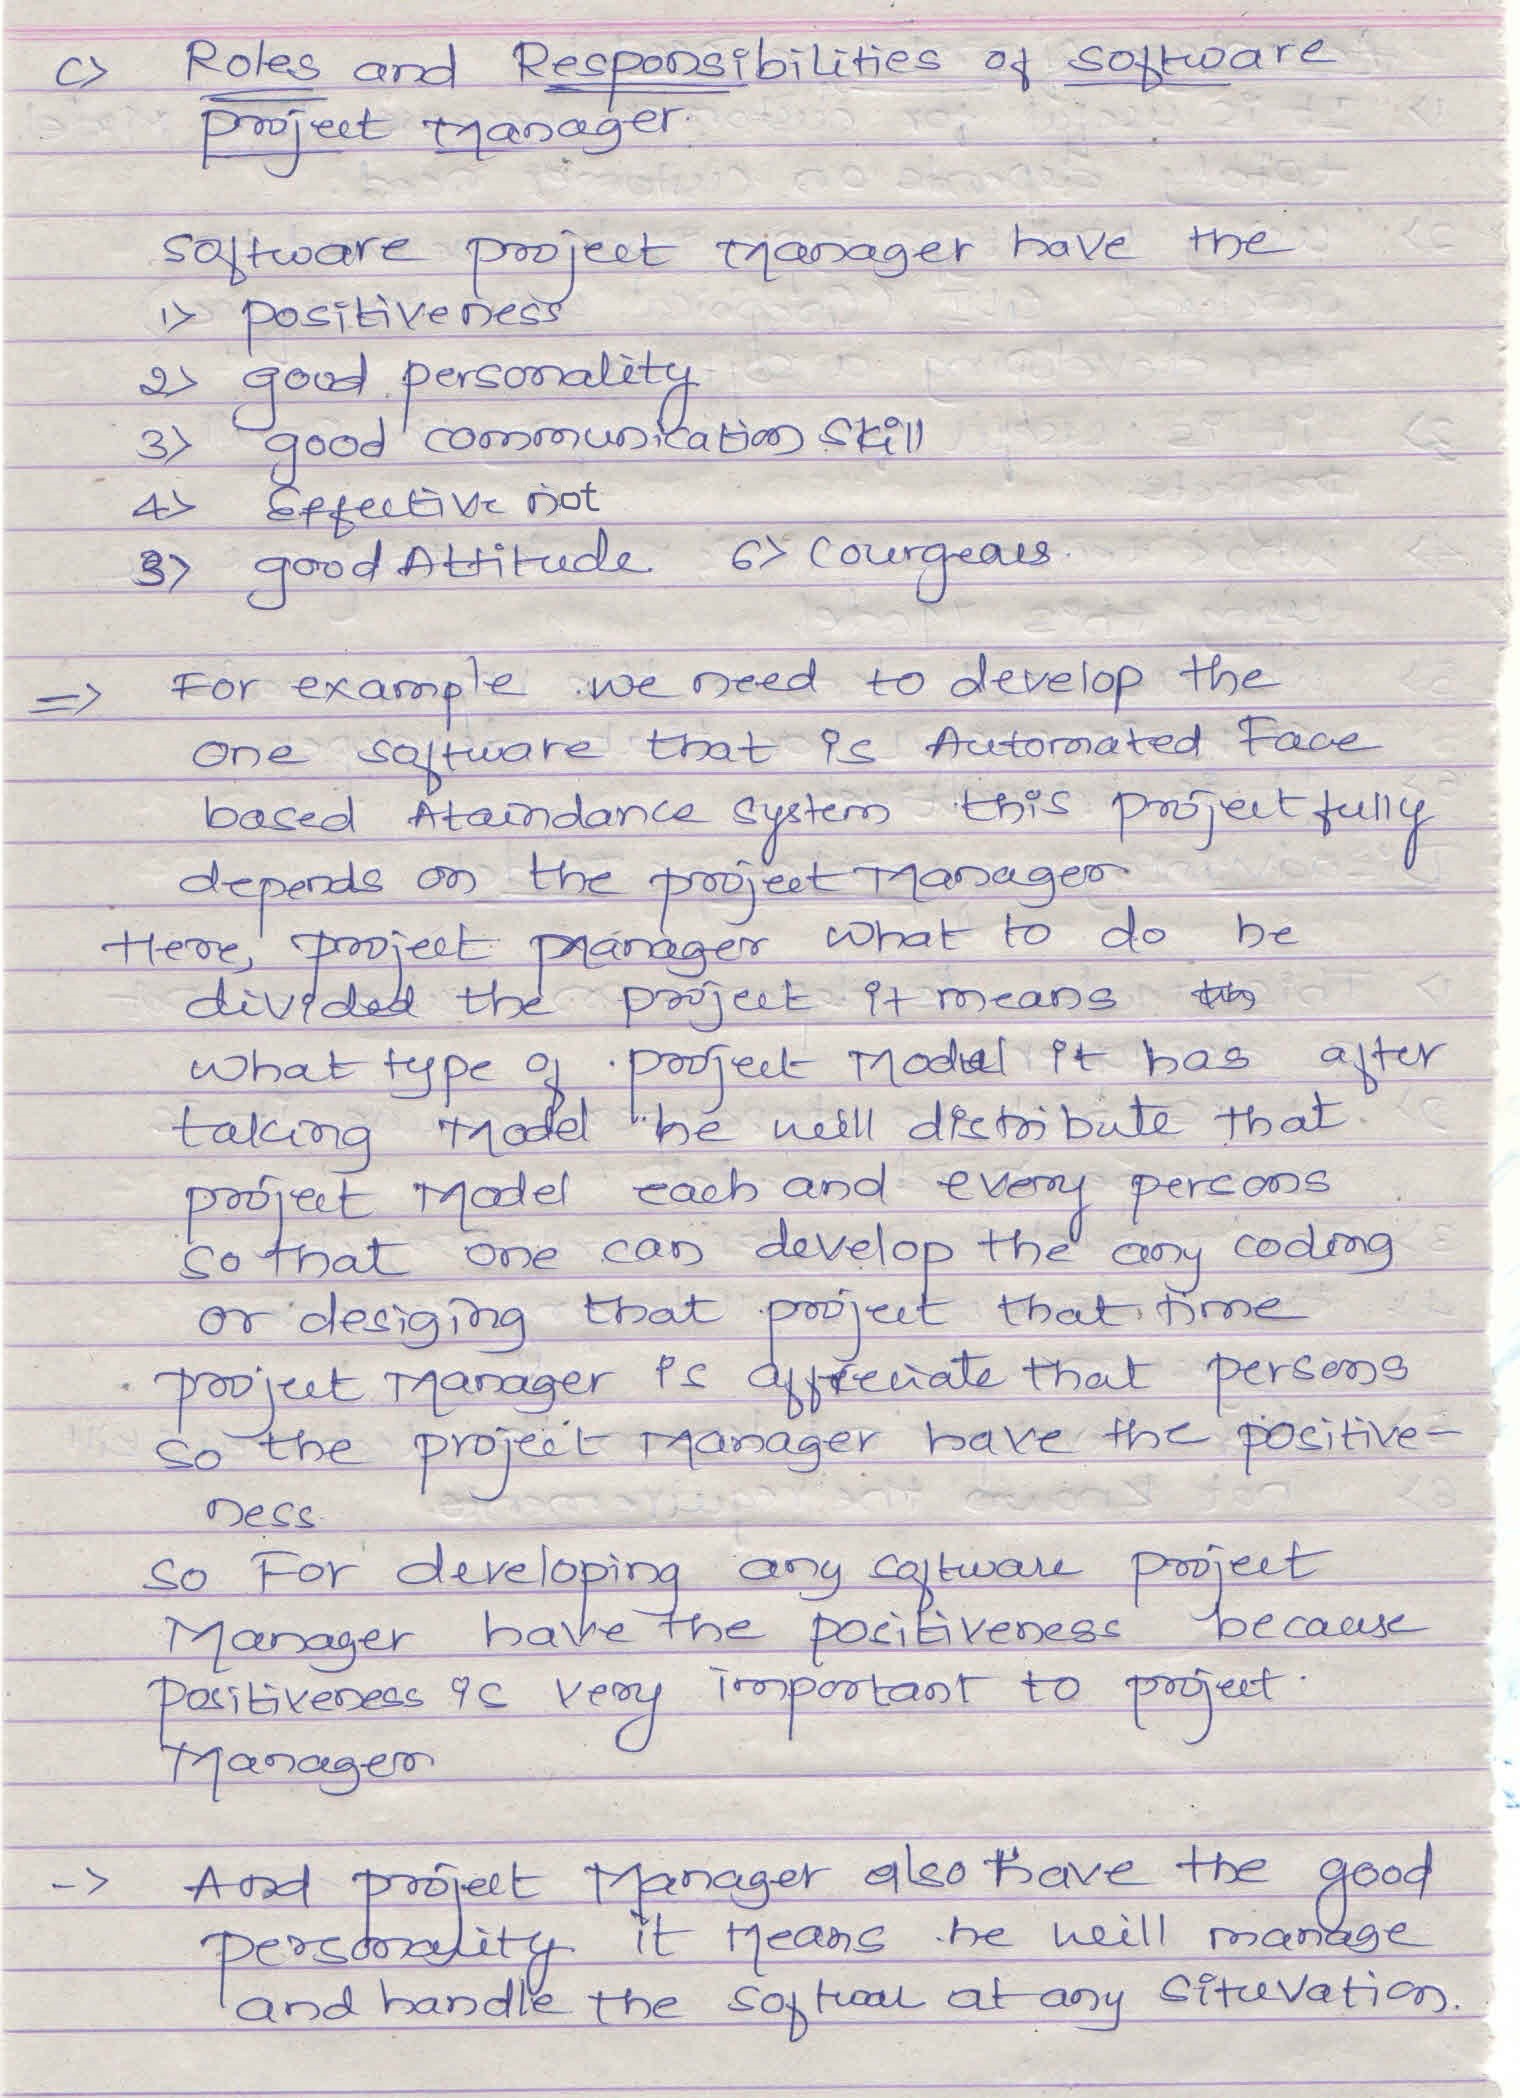 C> Roles and Responsibilities of software
project Manager.
software project Manager have the
1> positiveness
2> good personality
3> good communication skill
4> Effective not
5> good Attitude 6> courgeaus.
=> For example we need to develop the
one software that is Automated Face
based Ataindance system this project fully
depends on the project Manager
Here, project manager what to do he
divided the project it means
what type of project Model it has after
taking Model he will distribute that
project Model each and every persons
so that one can develop the any coding
or desiging that project that time
project Manager is affreciate that persons
so the project Manager have the positive-
ness.
so For developing any software project
Manager have the positiveness because
positiveness is very important to project
Manager
-> And project Manager also have the good
personality it Means he will manage
and handle the softwar at any situvation.